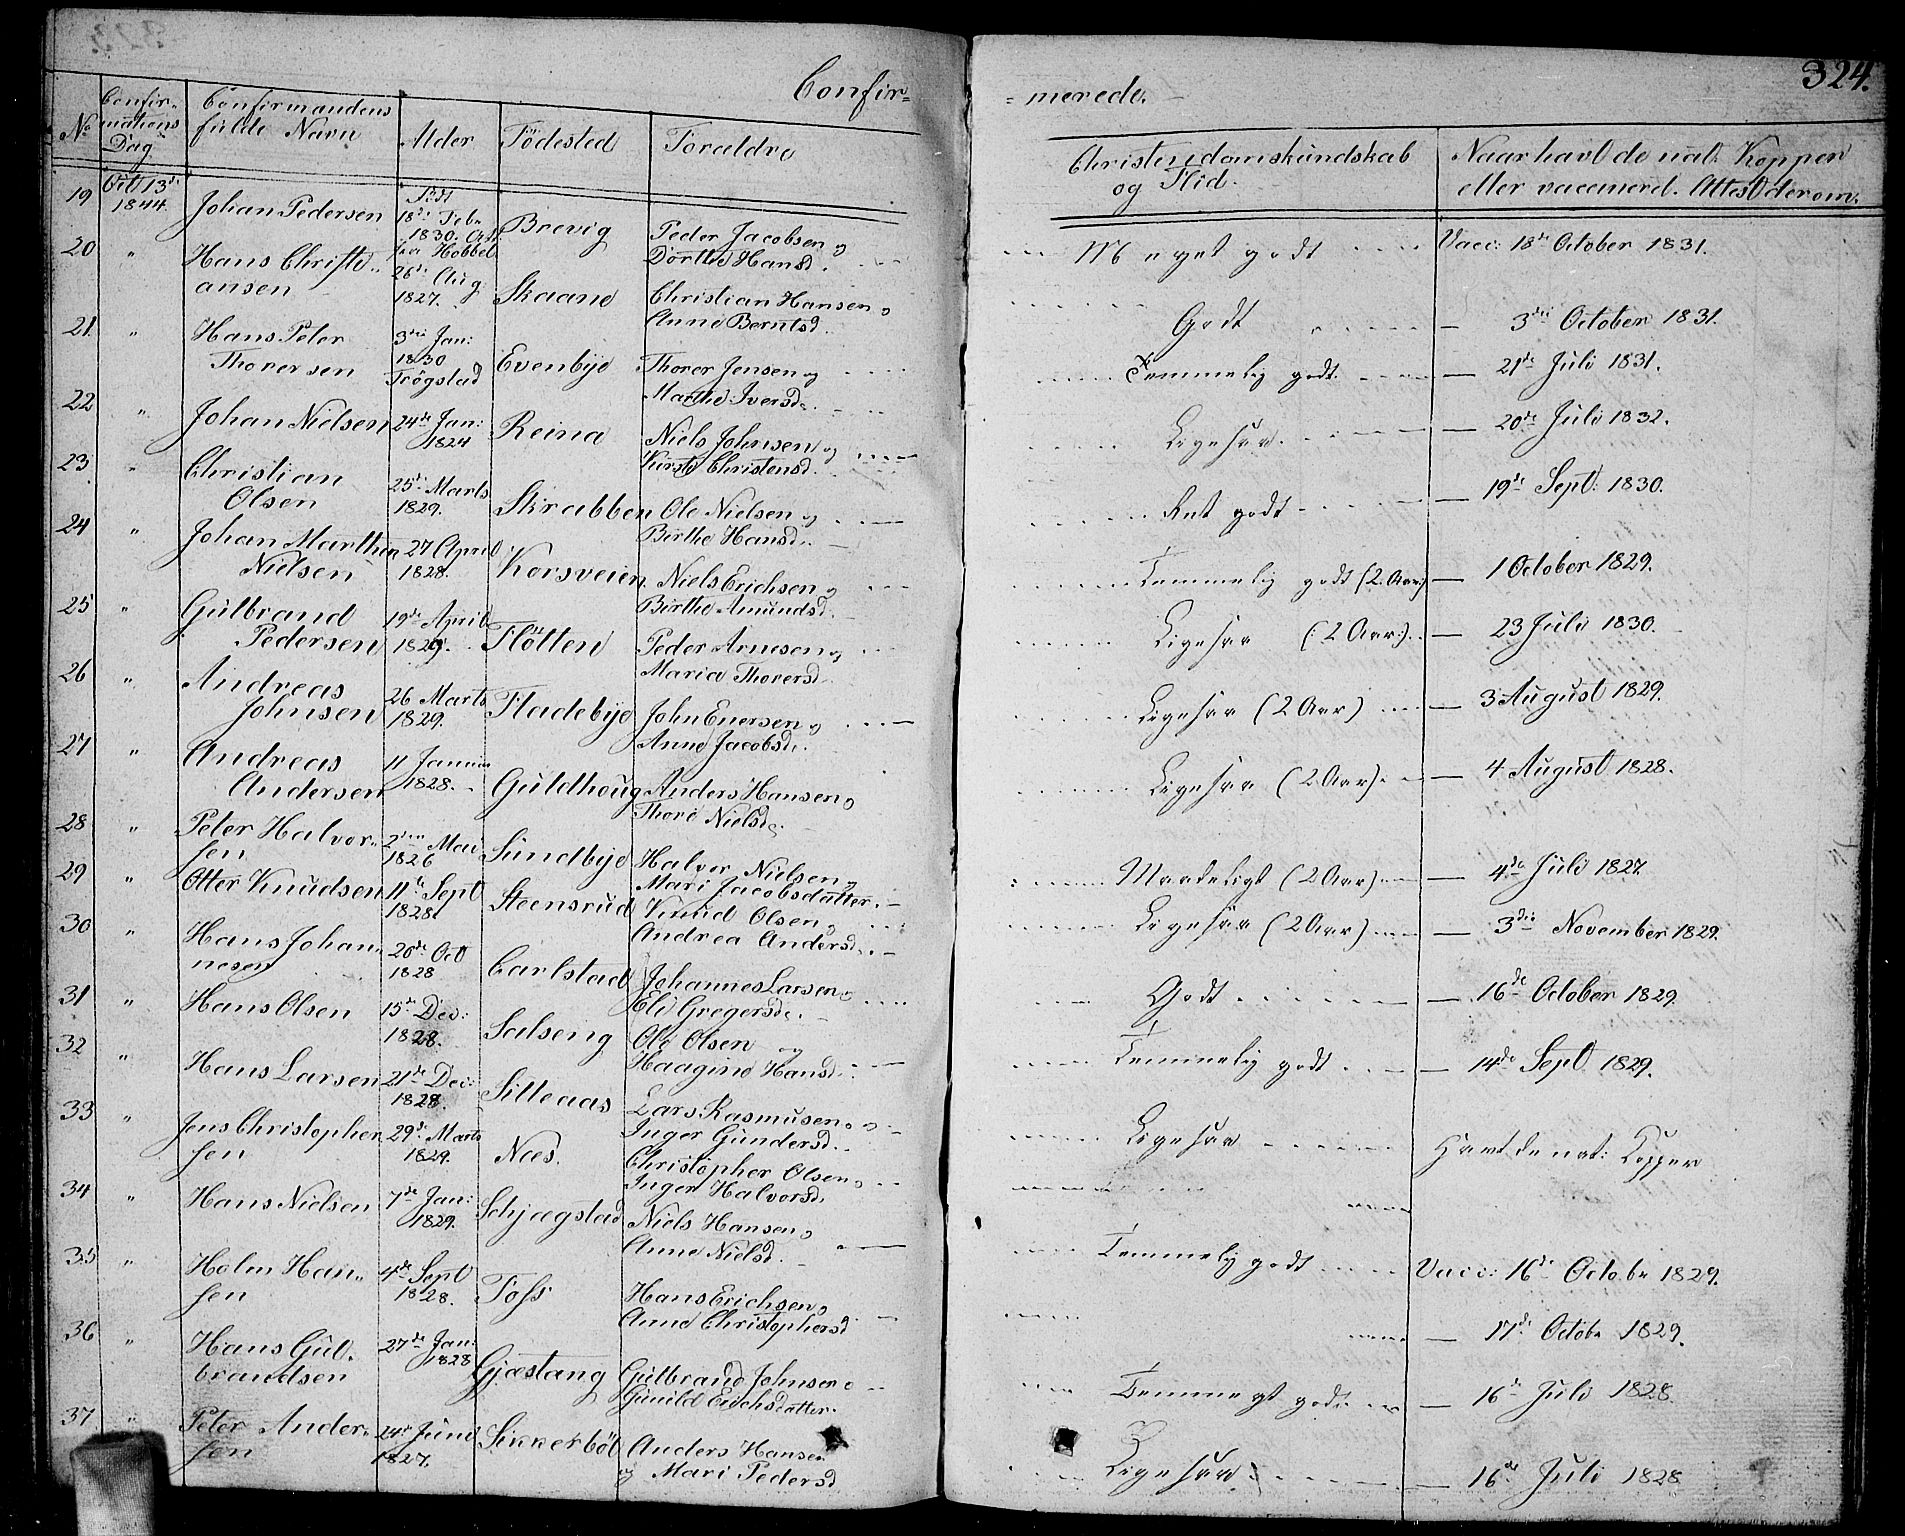 324.
Confir-
-merede.
No
Confir-
mations
Dag
Confirmandens
fulde Navn
Alder
Födested
Foraeldre
Christendomskundskab
og Flid.
Naar havt de nat. Kopper
eller vaccinerd. Attest derom.
19
Oct 13de
1844.
Johan Pedersen
Födt
18de Feb.
1830.
Brevig
Peder Jacobsen og
Dorthe Hansd.
Meget godt
Vacc: 18de October 1831.
20
"
Hans Christi-
ansen
fra Hobbel
26de Aug
1827.
Skaane
Christian Hansen og
Anne Berntsd.
Godt
— 3die October 1831.
21.
"
Hans Peter
Thorersen
3die Jan:
1830
Trögstad
Evenbye
Thorer Jensen og
Marthe Iversd.
Temmelig godt.
— 21de Juli 1831.
22
"
Johan Nielsen
24de Jan:
1824
Reina
Niels Johnsen og
Kirste Christensd.
Ligesaa.
— 20de Juli 1832.
23
"
Christian
Olsen
25de Marts
1829.
Skrabben
Ole Nielsen og
Birthe Hansd.
Ret godt
— 19de Sept: 1830.
24
"
Johan Marthin
Nielsen
27 April
1828.
Korsveien
Niels Erichsen og
Birthe Amundsd.
Temmelig godt (2. Aar)
— 1 October 1829.
25
"
Gulbrand
Pedersen
19de April
1829.
Flötten
Peder Arnesen og
Maria Thorersd.
Ligesaa (:2 Aar:)
— 23 Juli 1830.
26
"
Andreas
Johnsen
26 Marts
1829.
Fladebye
John Enersen og
Anne Jacobsd.
Ligesaa (2 Aar)
— 3 August 1829.
27
"
Andreas
Andersen
11 Januar
1828.
Guldhoug
Anders Hansen og
Thore Nielsd.
Ligesaa (2 Aar).
— 4 August 1828.
28
"
Peter Halvor-
sen
2den Mai
1826
Sundbye
Halvor Nielsen og
Mari Jacobsdatter.
Maadeligt (2 Aar)
— 4de Juli 1827.
29
"
Otter Knudsen
11te Sept
1828
Steensrud
Knud Olsen og
Andrea Andersd.
Ligesaa (2 Aar)
— 3die November 1829.
30
"
Hans Johan-
nesen
20de Oct
1828
Carlstad
Johannes Larsen og
Eli Gregersd.
Godt
— 16de October 1829.
31
"
Hans Olsen
15de Dec:
1828.
Salseng
Ole Olsen og
Haagine Hansd.
Temmelig godt
— 14de Sept 1829.
32
"
Hans Larsen
21de Dec:
1828.
Sitteaas
Lars Rasmusen og
Inger Gundersd.
Ligesaa
Havt de nat: Kopper
33
"
Jens Christopher-
sen
29de Marts
1829.
Naes.
Christopher Olsen og
Inger Halvorsd.
34
"
Hans Nielsen
7de Jan:
1829.
Schjøgstad
Niels Hansen og
Anne Nielsd.
Temmelig godt
Vacc: 16de Octob. 1829.
35
"
Holm Han-
sen
4de Sept
1828.
Foss
Hans Erichsen og
Anne Christophersd.
— 17de Octobr 1829.
36
"
Hans Gul-
brandsen
27de Jan:
1828
Gjæstang
Gulbrand Johnsen og
Gunild Erichsdatter.
Temmelgt godt
— 16de Juli 1828.
37.
"
Peter Ander-
sen
24de Juni
1827.
Sikkerböl
Anders Hansen
og Mari Pedersd
Ligesaa
— 16de Juli 1828